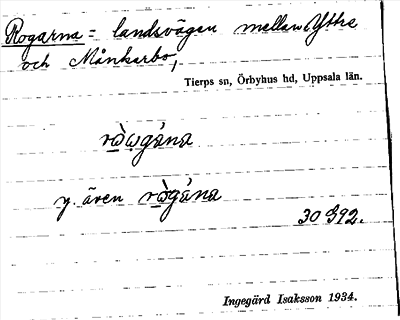 Rogarna = landsvägen mellan Yttre
och Månkarbo,
Tierps sn, Örbyhus hd, Uppsala län.
y. även
30392.
Ingegärd Isaksson 1934.